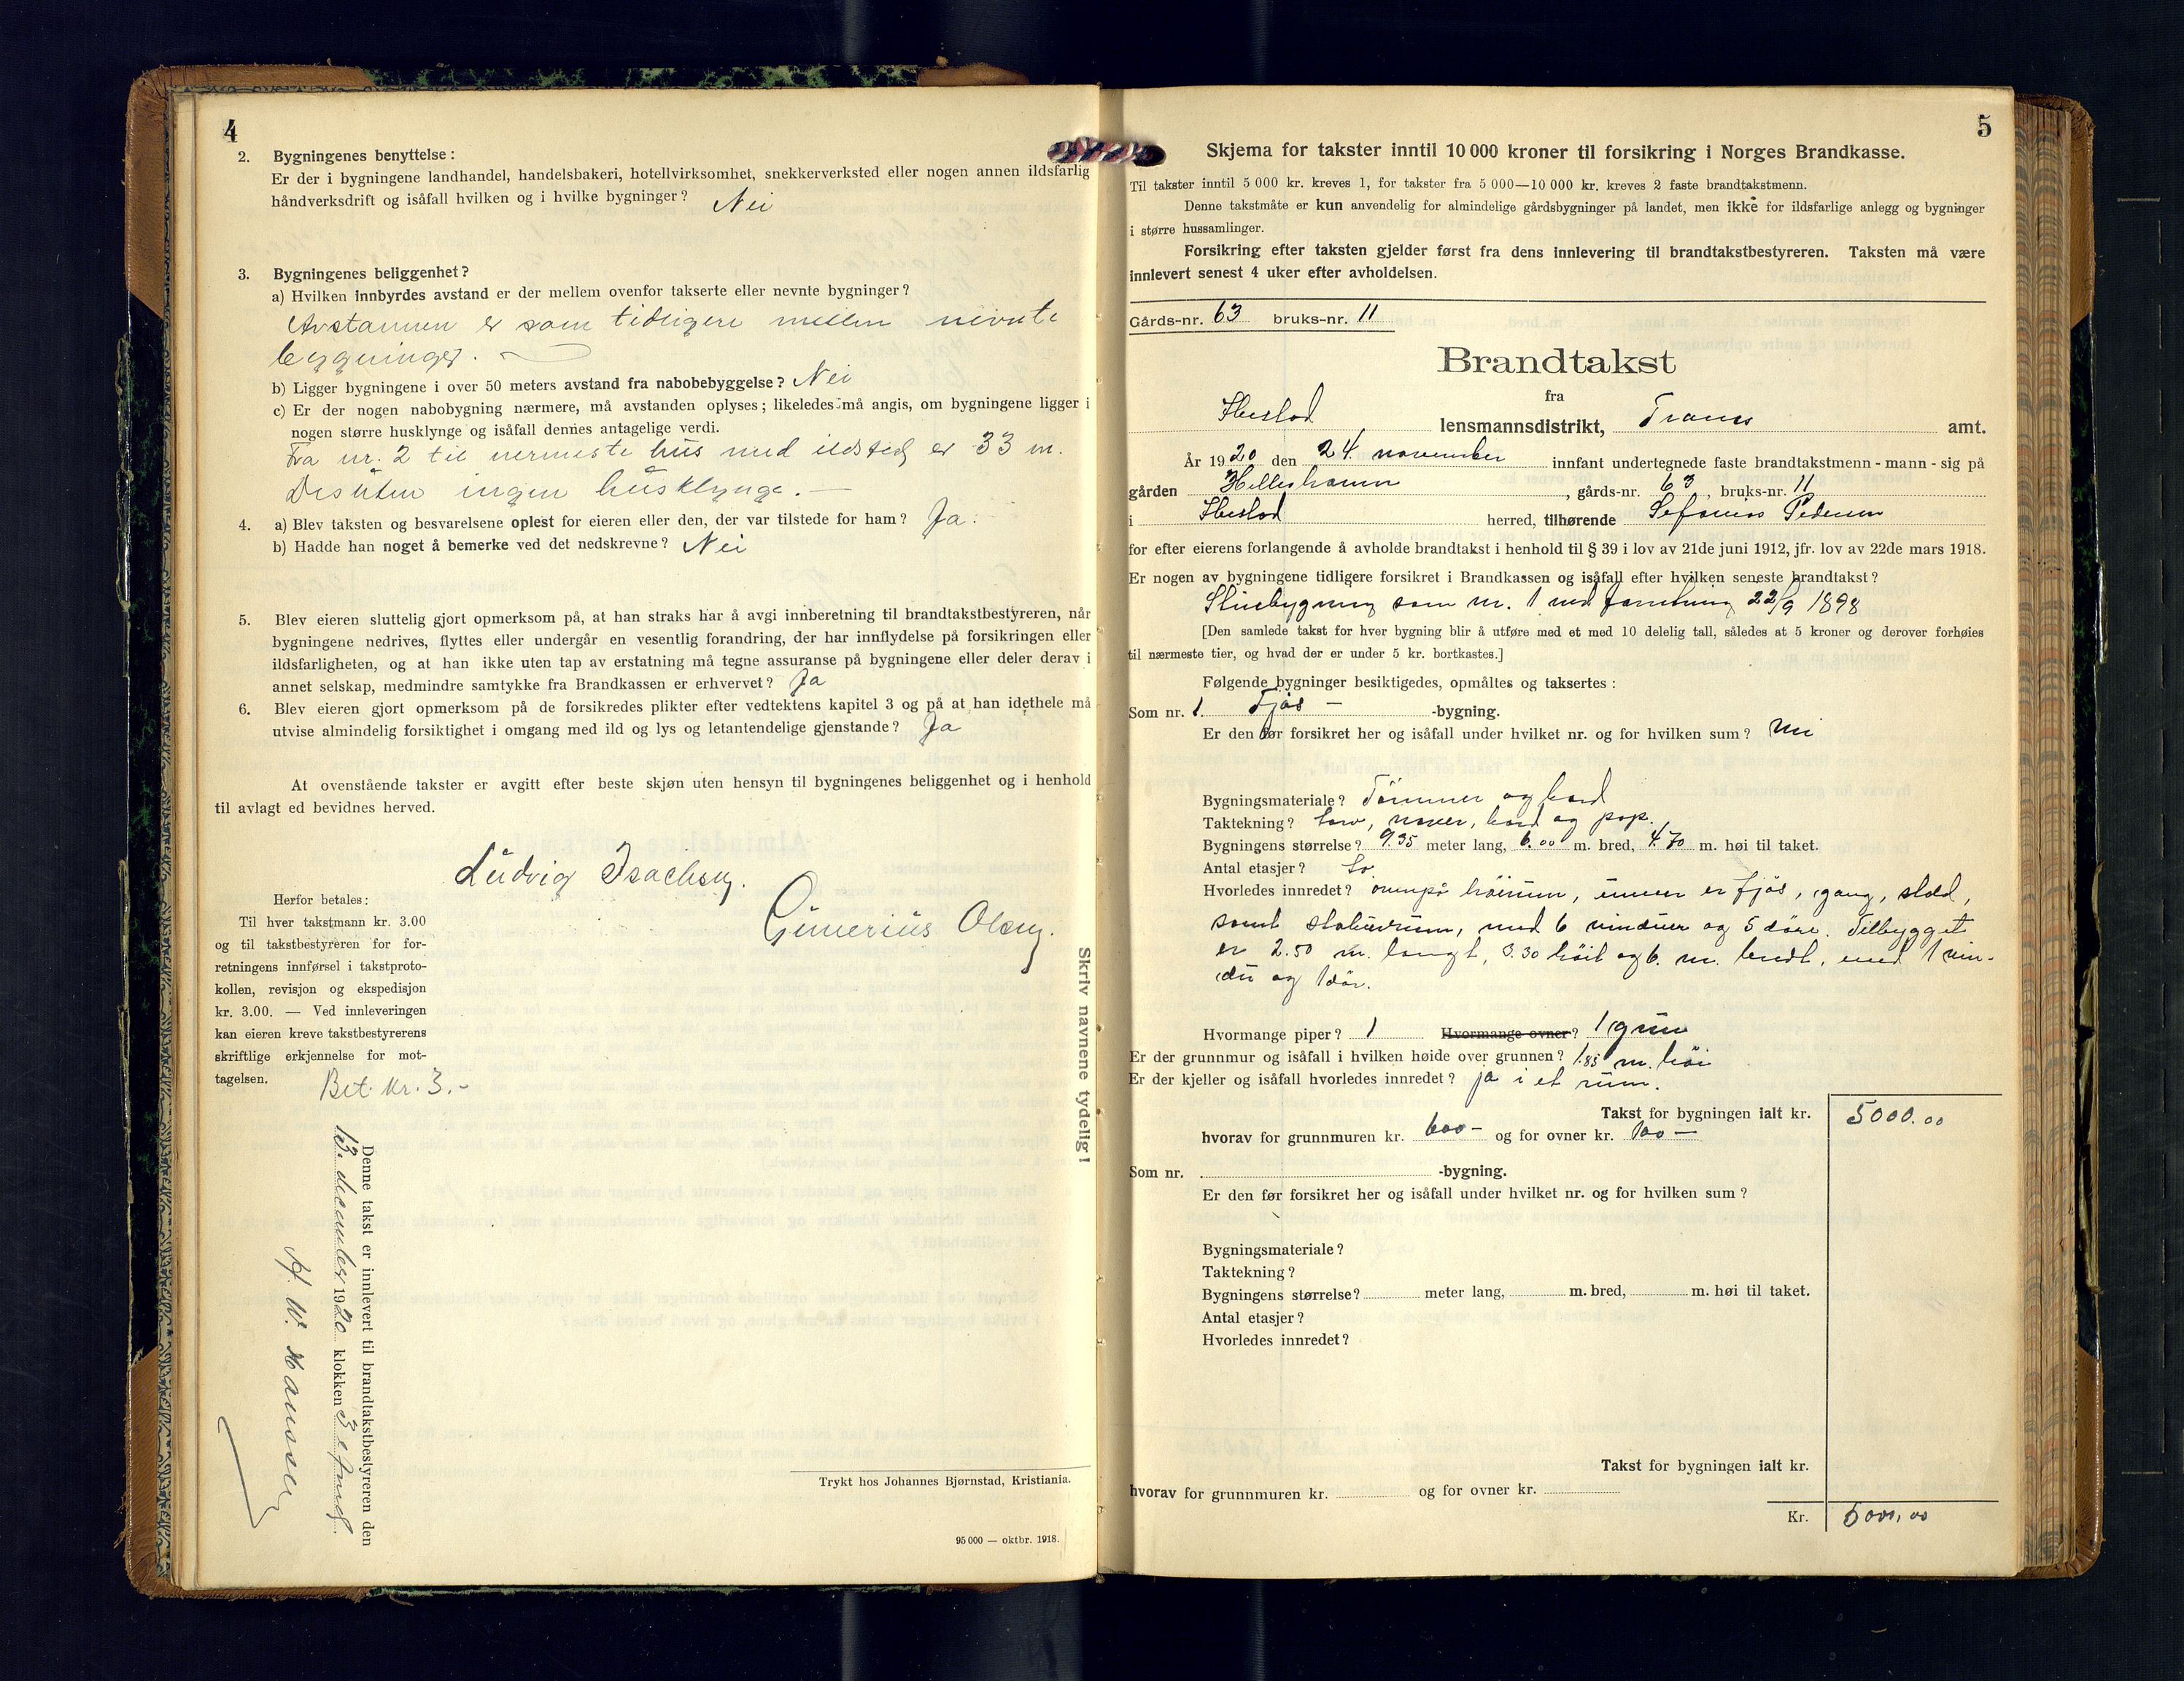 4
2. Bygningenes benyttelse:
Er der i bygningene landhandel, handelsbakeri, hotellvirksomhet, snekkerverksted eller nogen annen ildsfarlig
håndverksdrift og isåfall hvilken og i hvilke bygninger? Nei
3. Bygningenes beliggenhet?
a) Hvilken innbyrdes avstand er der mellem ovenfor takserte eller nevnte bygninger?
Avstannen er som tidligere mellem nevnte
bygninger.
b) Ligger bygningene i over 50 meters avstand fra nabobebyggelse? Nei
c) Er der nogen nabobygning nærmere, må avstanden oplyses; likeledes må angis, om bygningene ligger i
nogen større husklynge og isåfall dennes antagelige verdi.
Fra nr. 2 til nermeste hus med ildsted er 33 m.
Desuten ingen husklynge. —
4. a) Blev taksten og besvarelsene oplest for eieren eller den, der var tilstede for ham? Ja.
b) Hadde han noget å bemerke ved det nedskrevne? Nei
5. Blev eieren sluttelig gjort opmerksom på, at han straks har å avgi innberetning til brandtakstbestyreren, når
bygningene nedrives, flyttes eller undergår en vesentlig forandring, der har innflydelse på forsikringen eller
ildsfarligheten, og at han ikke uten tap av erstatning må tegne assuranse på bygningene eller deler derav i
annet selskap, medmindre samtykke fra Brandkassen er erhvervet? Ja
6. Blev eieren gjort opmerksom på de forsikredes plikter efter vedtektens kapitel 3 og på at han idethele må
utvise almindelig forsiktighet i omgang med ild og lys og letantendelige gjenstande? Ja
At ovenstående takster er avgitt efter beste skjøn uten hensyn til bygningenes beliggenhet og i henhold
til avlagt ed bevidnes herved.
Ludvig Isachsen.
Gunerius Olsen.
Herfor betales:
Til hver takstmann kr. 3.00
og til takstbestyreren for for-
retningens innførsel i takstproto-
kollen, revisjon og ekspedisjon
kr. 3.00. — Ved innleveringen
kan eieren kreve takstbestyrerens
skriftlige erkjennelse for mot-
tagelsen.
Bet. kr. 3.-
Denne takst er innlevert til brandtakstbestyreren den
13. december 1920 klokken 3 e/md.
A. W. Hanssen
Skriv navnene tydelig!
Trykt hos Johannes Bjørnstad, Kristiania.
95 000 — oktbr. 1918.
5
Skjema for takster inntil 10 000 kroner til forsikring i Norges Brandkasse.
Til takster inntil 5 000 kr. kreves 1, for takster fra 5 000—10 000 kr. kreves 2 faste brandtakstmenn.
Denne takstmåte er kun anvendelig for almindelige gårdsbygninger på landet, men ikke for ildsfarlige anlegg og bygninger
i større hussamlinger.
Forsikring efter taksten gjelder først fra dens innlevering til brandtakstbestyreren. Taksten må være
innlevert senest 4 uker efter avholdelsen.
Gårds-nr. 63 bruks-nr. 11
Brandtakst
fra
Ibestad lensmannsdistrikt, Troms amt.
År 1920 den 24. november innfant undertegnede faste brandtakstmenn - mann - sig på
gården Hilleshamn, gårds-nr. 63, bruks-nr. 11
i Ibestad herred, tilhørende Sefanias Pedersen
for efter eierens forlangende å avholde brandtakst i henhold til § 39 i lov av 21de juni 1912, jfr. lov av 22de mars 1918.
Er nogen av bygningene tidligere forsikret i Brandkassen og isåfall efter hvilken seneste brandtakst?
Stuebygning som nr. 1 ved forretning 22/9 1898
[Den samlede takst for hver bygning blir å utføre med et med 10 delelig tall, således at 5 kroner og derover forhøies
til nærmeste tier, og hvad der er under 5 kr. bortkastes.]
Følgende bygninger besiktigedes, opmåltes og taksertes:
Som nr. 1. Fjøs — -bygning.
Er den før forsikret her og isåfall under hvilket nr. og for hvilken sum? nei
Bygningsmateriale? Tømmer og bord
Taktekning? torv, never, bord og pap.
Bygningens størrelse? 9.35 meter lang, 6.00 m. bred, 4.70 m. høi til taket.
Antal etasjer? to
Hvorledes innredet? ovenpå høirum, under er fjøs, gang, stald,
samt staburrum, med 6 vinduer og 5 døre. Tilbygget
er 2.50 m. langt, 3.30 høit og 6. m. bredt, med 1 vin-
du og 1 dør.
Hvormange piper? 1 Hvormange ovner? 1 grue
Er der grunnmur og isåfall i hvilken høide over grunnen? 1.85 m. høi
Er der kjeller og isåfall hvorledes innredet? ja i et rum.
Takst for bygningen ialt kr. 5000.00
hvorav for grunnmuren kr. 600- og for ovner kr. 100—
Som nr. -bygning.
Er den før forsikret her og isåfall under hvilket nr. og for hvilken sum?
Bygningsmateriale?
Taktekning?
Bygningens størrelse? meter lang, m. bred, m. høi til taket.
Antal etasjer?
Hvorledes innredet?
Takst for bygningen ialt kr.
hvorav for grunnmuren kr. og for ovner kr.
Kr. 5000.00